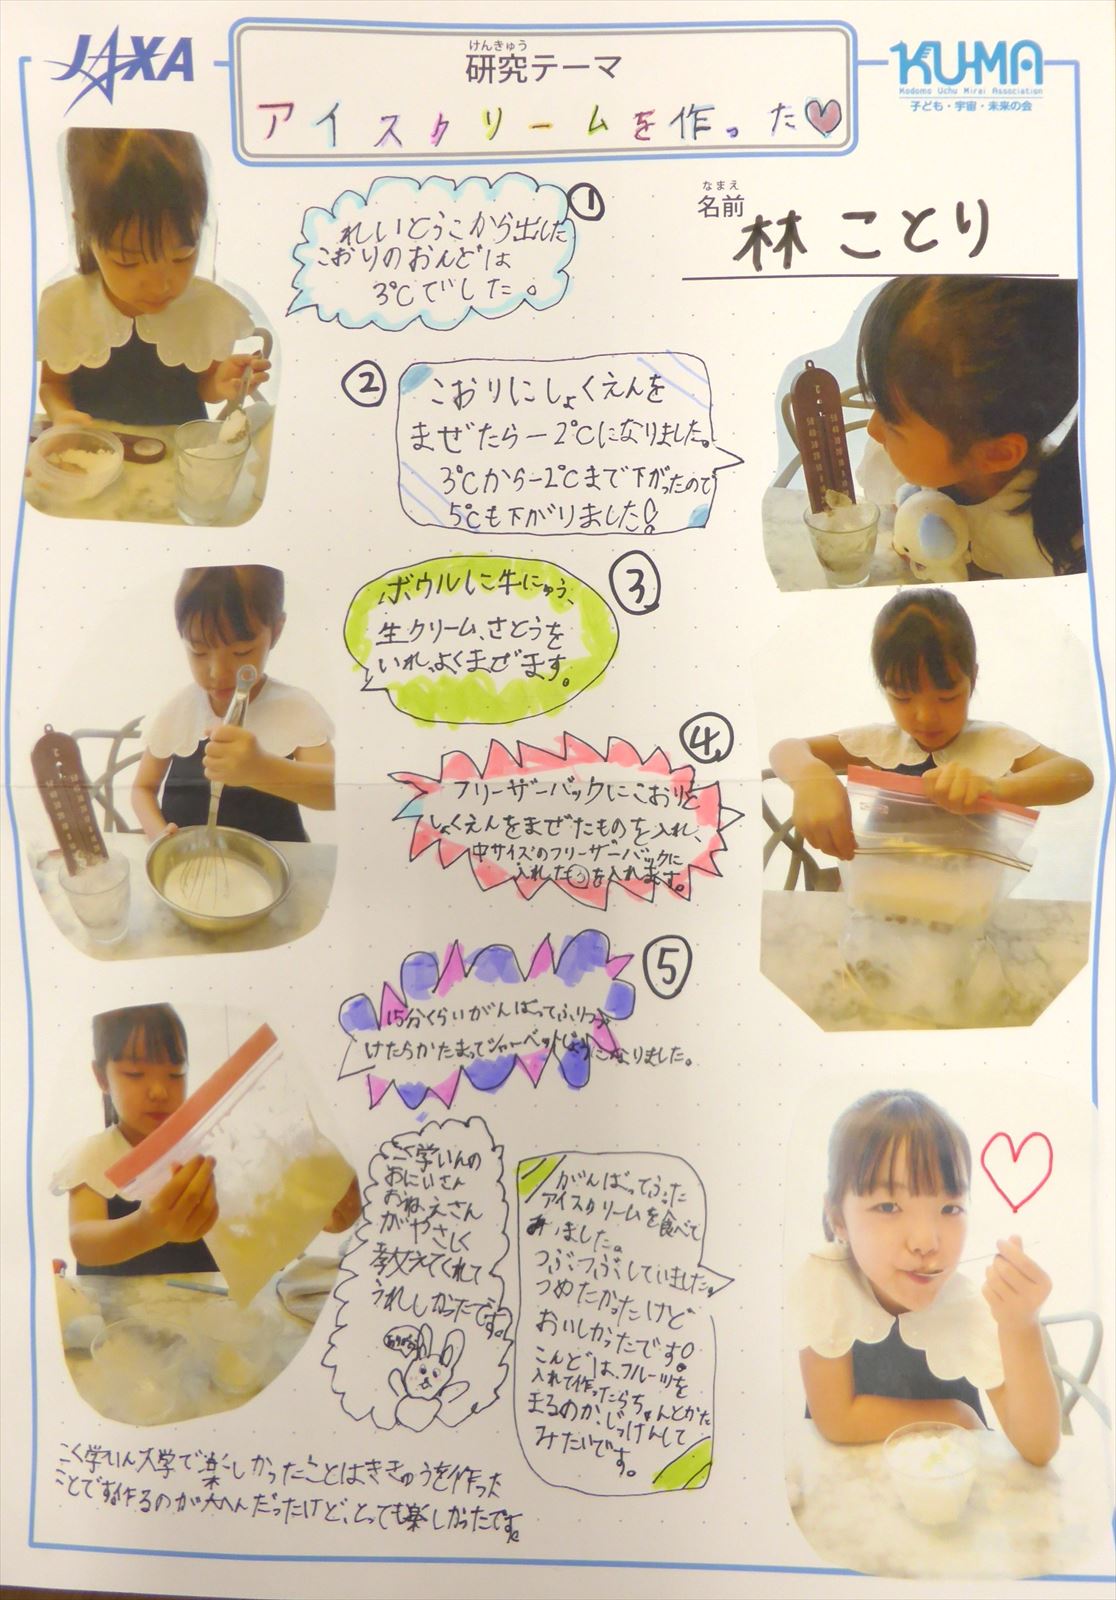 JAXA
けんきゅう
研究テーマ
アイスクリームを作った♡
KUMA
Kodomo Uchu Mirai Association
子ども・宇宙・未来の会
なまえ
名前
林 ことり
①
れいとうこから出した
こおりのおんどは
3℃でした。
②
こおりにしょくえんを
まぜたら-2℃になりました。
3℃から-2℃まで下がったので
5℃も下がりました!
③
ボウルに牛にゅう、
生クリーム、さとうを
いれ、よくまぜます。
④
フリーザーバックにこおりと
しょくえんをまぜたものを入れ、
中サイズのフリーザーバックに
入れた③を入れます。
⑤
15分くらいがんばってふりつづ
けたらかたまってシャーベットじょうになりました。
こく学いんの
おにいさん
おねえさん
がやさしく
教えてくれて
うれしかったです。
ありがとう
がんばってふった
アイスクリームを食べて
みました。
つぶつぶしていました。
つめたかったけど
おいしかったです。
こんどは、フルーツを
入れて作ったらちゃんとかた
まるのか、じっけんして
みたいです。
こく学いん大学で楽しかったことはききゅうを作った
ことです。作るのが大へんだったけど、とっても楽しかったです。